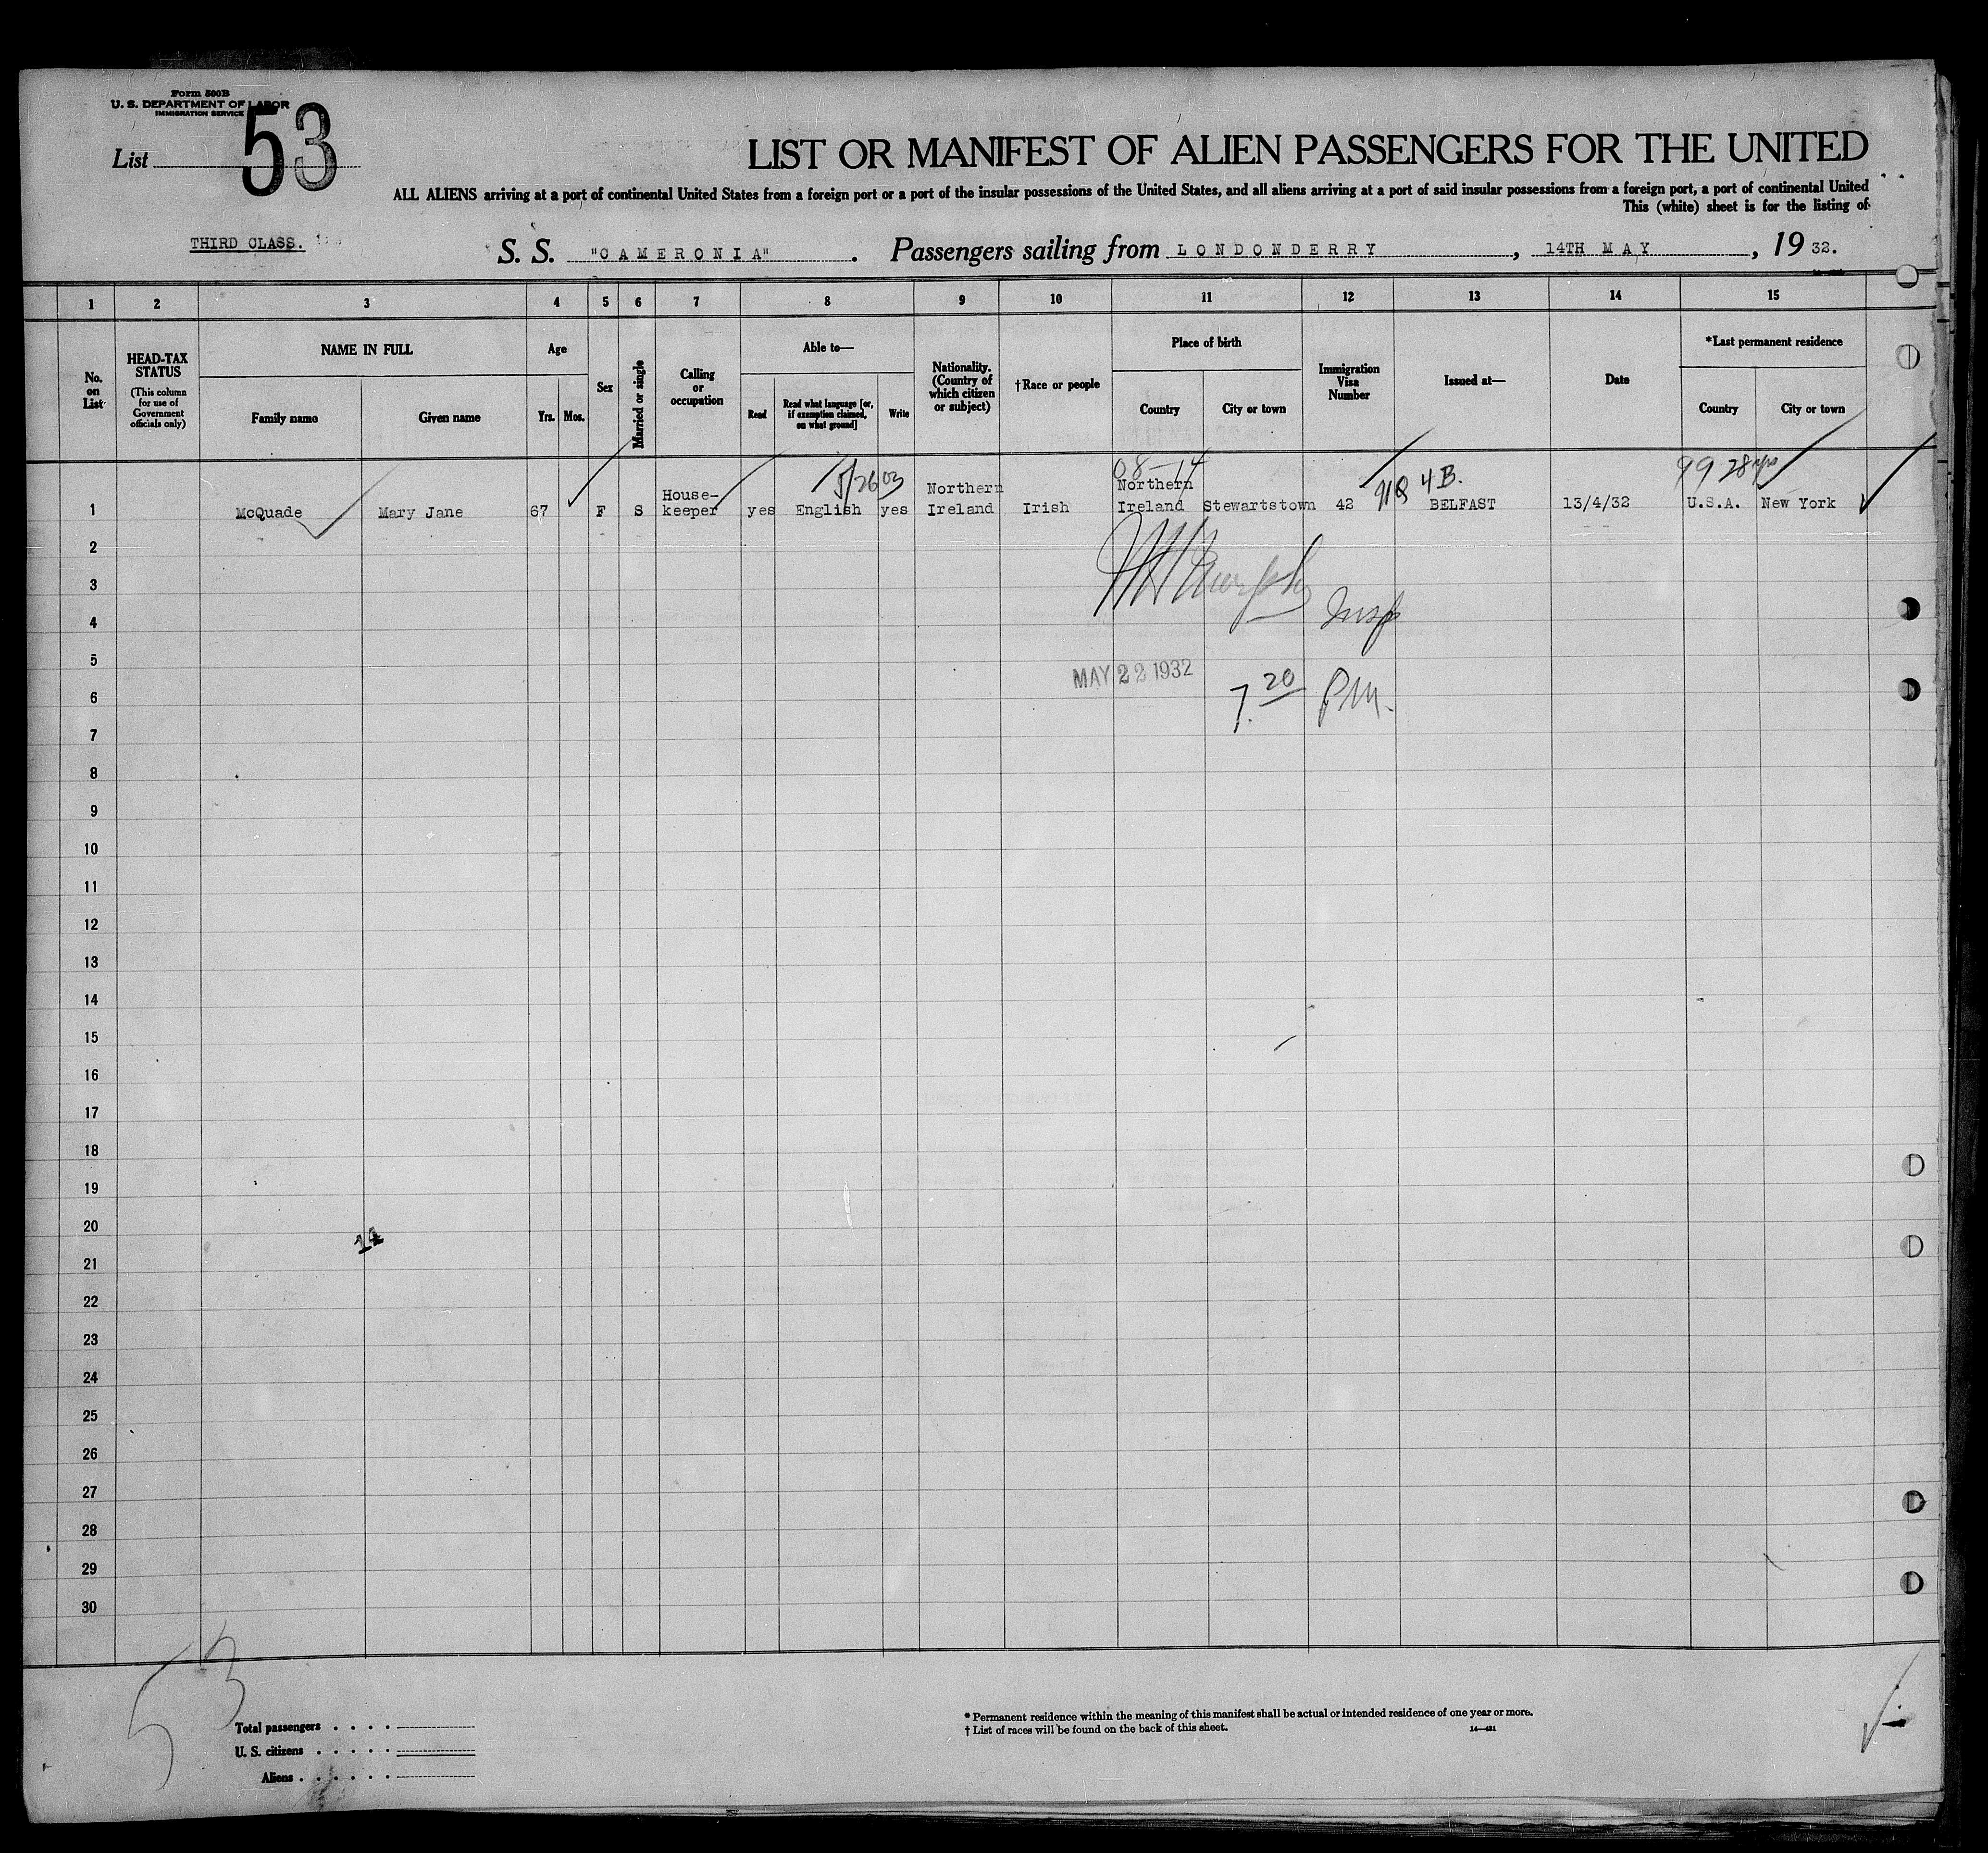 Form 500B
U. S. DEPARTMENT OF LABOR
IMMIGRATION SERVICE
List 53
LIST OR MANIFEST OF ALIEN PASSENGERS FOR THE UNITED
ALL ALIENS arriving at a port of continental United States from a foreign port or a port of the insular possessions of the United States, and all aliens arriving at a port of said insular possessions from a foreign port, a port of continental United
This (white) sheet is for the listing of
THIRD CLASS.
S. S. "CAMERONIA". Passengers sailing from LONDONDERRY, 14TH MAY, 1932.
1 2 3 4 5 6 7 8 9 10 11 12 13 14 15
No. on List
HEAD-TAX STATUS
(This column for use of Government officials only)
NAME IN FULL
Family name
Given name
Age
Yrs.
Mos.
Sex
Married or single
Calling or occupation
Able to—
Read
Read what language [or, if exemption claimed, on what ground]
Write
Nationality. (Country of which citizen or subject)
†Race or people
Place of birth
Country
City or town
Immigration Visa Number
Issued at—
Date
*Last permanent residence
Country
City or town
5/26 03
08-14
4B.
99 28 yrs
1 McQuade Mary Jane 67 F S House-keeper yes English yes Northern Ireland Irish Northern Ireland Stewartstown 42 BELFAST 13/4/32 U.S.A. New York
2
3
Murphy
4
Insp
5
MAY 22 1932
6
7.20 PM.
7
8
9
10
11
12
13
14
15
16
17
18
19
20
14
21
22
23
24
25
26
27
28
29
30
53
Total passengers . . . .
U. S. citizens . . . . .
Aliens . . . . . .
* Permanent residence within the meaning of this manifest shall be actual or intended residence of one year or more.
† List of races will be found on the back of this sheet.
14—421